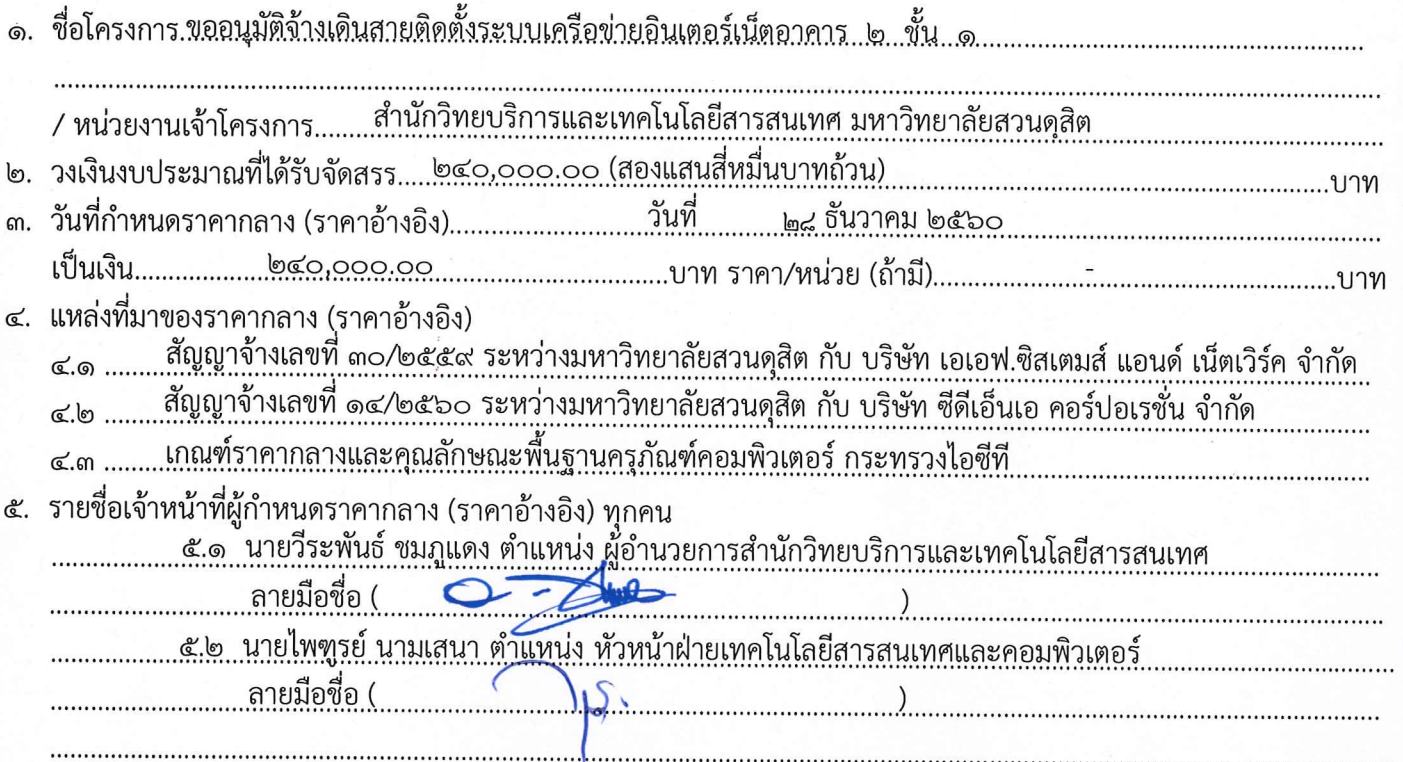 ๑. ชื่อโครงการ.ขออนุมัติจ้างเดินสายติดตั้งระบบเครือข่ายอินเตอร์เน็ตอาคาร ๒ ชั้น ๑
/ หน่วยงานเจ้าโครงการ สำนักวิทยบริการและเทคโนโลยีสารสนเทศ มหาวิทยาลัยสวนดุสิต
๒. วงเงินงบประมาณที่ได้รับจัดสรร ๒๔๐,๐๐๐.๐๐ (สองแสนสี่หมื่นบาทถ้วน) บาท
๓. วันที่กำหนดราคากลาง (ราคาอ้างอิง) วันที่ ๒๘ ธันวาคม ๒๕๖๐
เป็นเงิน ๒๔๐,๐๐๐.๐๐ บาท ราคา/หน่วย (ถ้ามี) - บาท
๔. แหล่งที่มาของราคากลาง (ราคาอ้างอิง)
๔.๑ สัญญาจ้างเลขที่ ๓๐/๒๕๕๙ ระหว่างมหาวิทยาลัยสวนดุสิต กับ บริษัท เอเอฟ.ซิสเตมส์ แอนด์ เน็ตเวิร์ค จำกัด
๔.๒ สัญญาจ้างเลขที่ ๑๔/๒๕๖๐ ระหว่างมหาวิทยาลัยสวนดุสิต กับ บริษัท ซีดีเอ็นเอ คอร์ปอเรชั่น จำกัด
๔.๓ เกณฑ์ราคากลางและคุณลักษณะพื้นฐานครุภัณฑ์คอมพิวเตอร์ กระทรวงไอซีที
๕. รายชื่อเจ้าหน้าที่ผู้กำหนดราคากลาง (ราคาอ้างอิง) ทุกคน
๕.๑ นายวีระพันธ์ ชมภูแดง ตำแหน่ง ผู้อำนวยการสำนักวิทยบริการและเทคโนโลยีสารสนเทศ
ลายมือชื่อ ( )
๕.๒ นายไพฑูรย์ นามเสนา ตำแหน่ง หัวหน้าฝ่ายเทคโนโลยีสารสนเทศและคอมพิวเตอร์
ลายมือชื่อ ( )